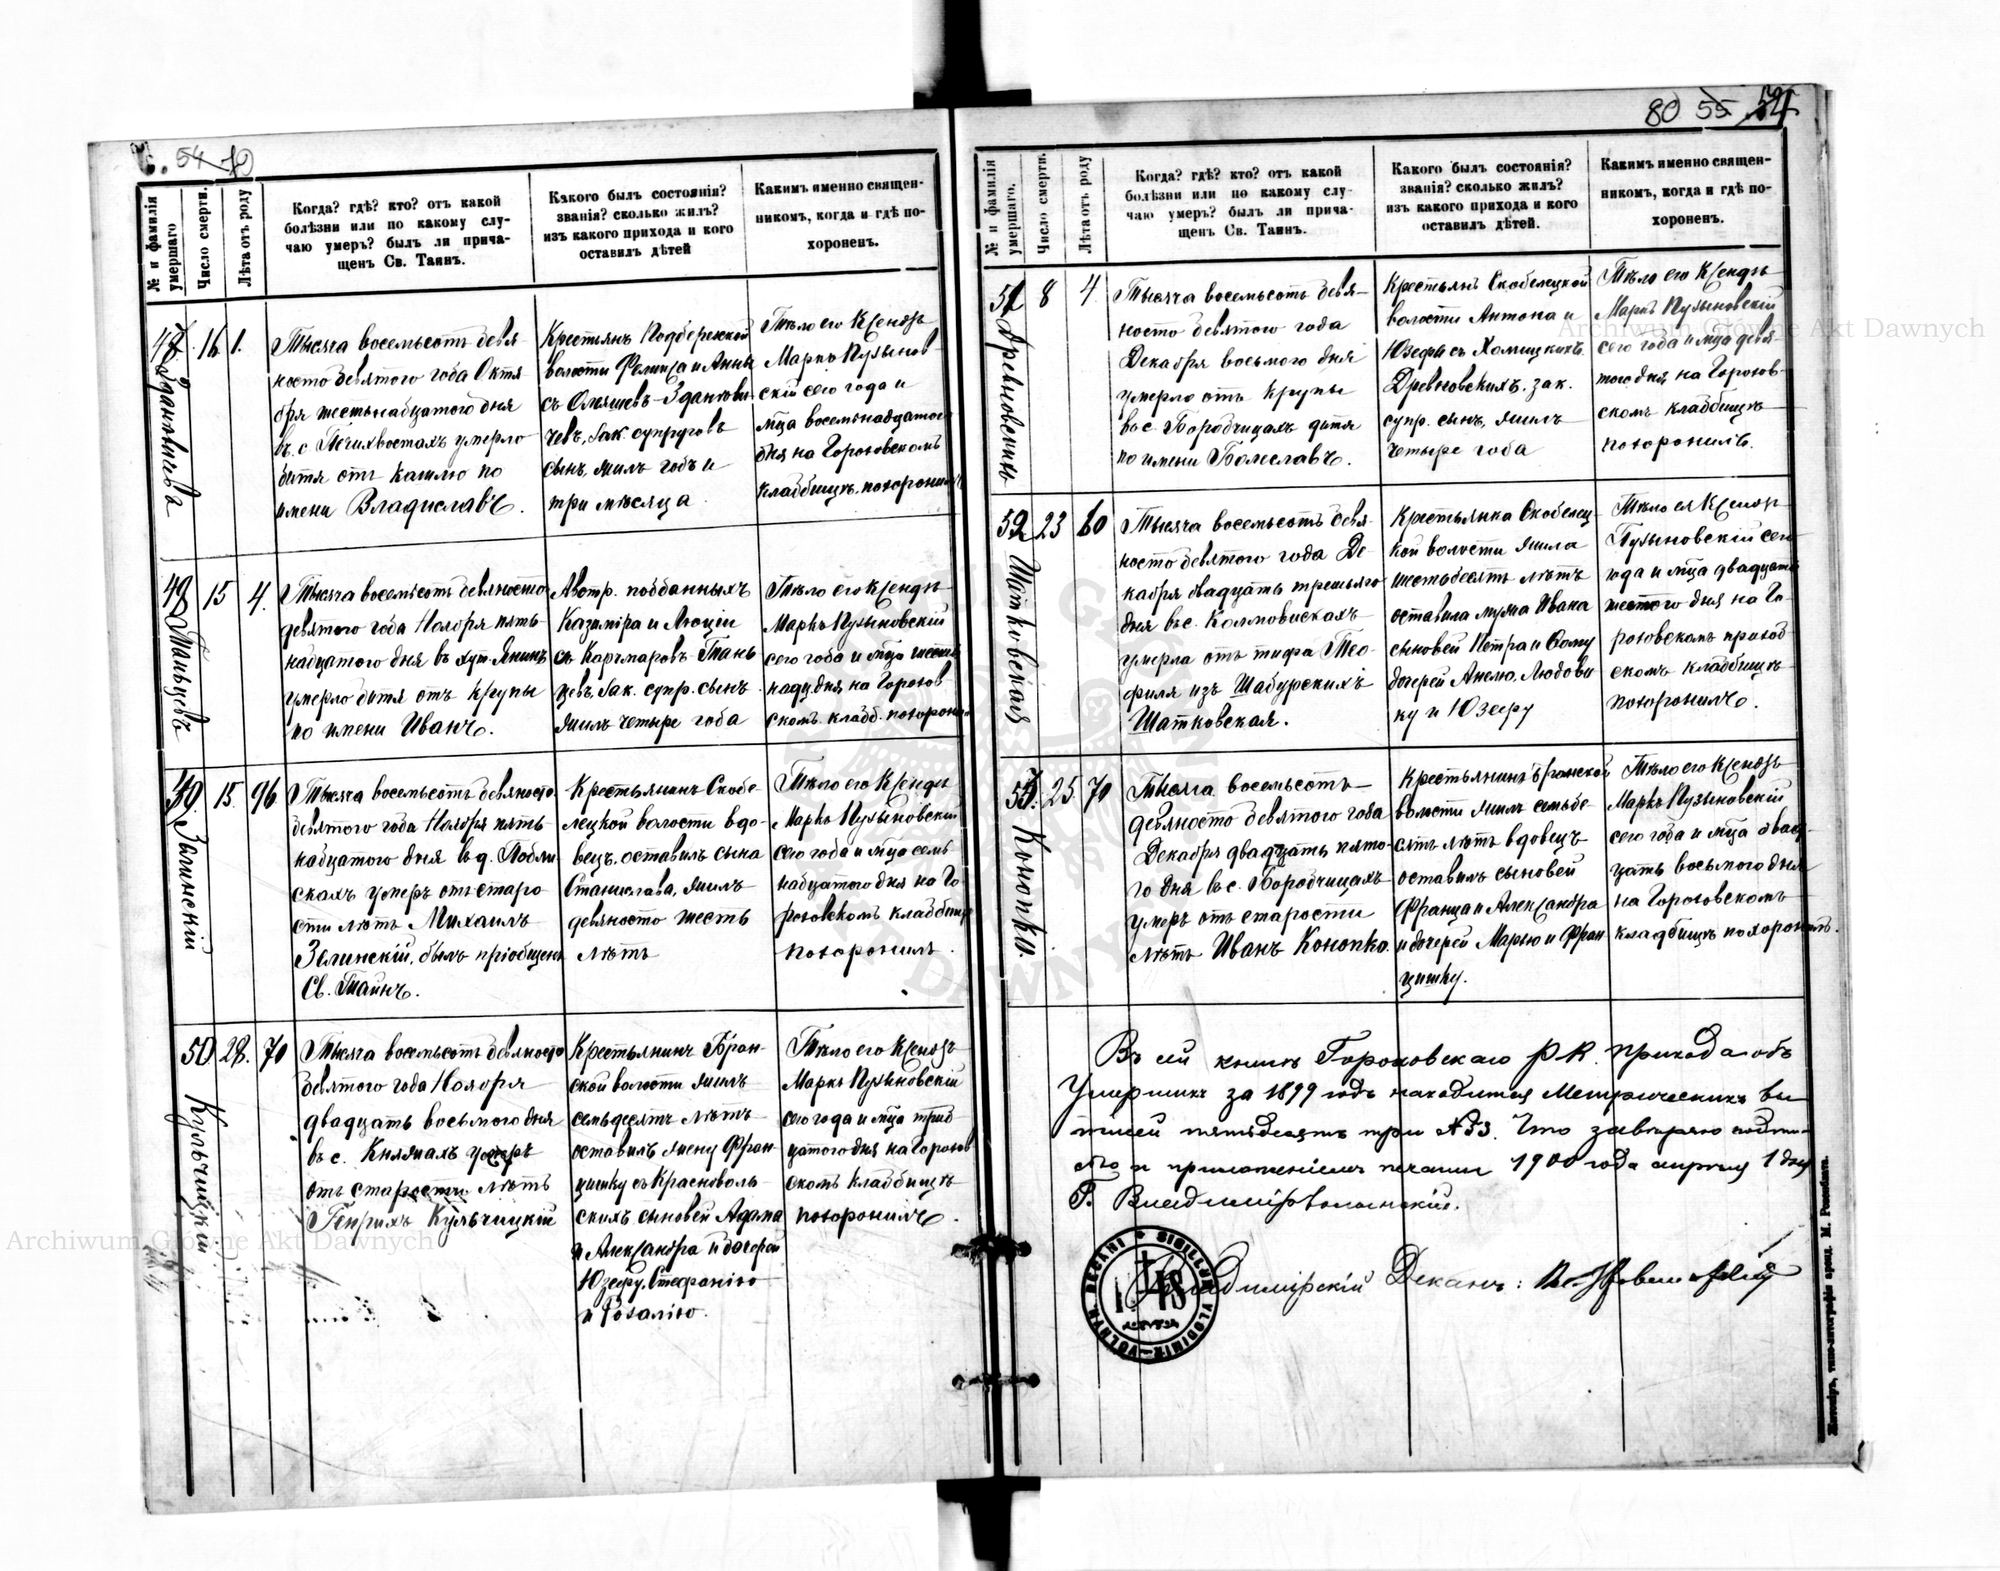 54
№ и фамилія умершаго
Число смерти.
Лѣта отъ роду
Когда? гдѣ? кто? отъ какой
болѣзни или по какому слу-
чаю умеръ? былъ ли прича-
щенъ Св. Таинъ.
Какого былъ состоянія?
званія? сколько жилъ?
изъ какого прихода и кого
оставилъ дѣтей
Какимъ именно священ-
никомъ, когда и гдѣ по-
хороненъ.
16
1.
Тысяча восемьсотъ девя-
носто девятого года Октя
бря шестьнадцатого дня
въ с Печихвостахъ умерло
дитя отъ кашлю по
имени Владиславъ.
Крестьянъ Подберезской
волости Феликса и Анны
съ Олешевъ-Зданкови
чевъ, зак. супруговъ
сынъ, жилъ годъ и
три мѣсяца.
Тѣло его Ксендзъ
Маркъ Пузынов-
скій сего года и
мца восемьнадцатого
дня на Гороховскомъ
кладбищѣ, похоронилъ
49
Танцевъ
15
4.
Тысяча восемьсотъ девяносто
девятого года Ноября пять-
надцатого дня въ хут. Янинъ
умерло дитя отъ крупы
по имени Иванъ.
Австр. подданныхъ
Казиміра и Люціи
съ Карчмаровъ-Тань
цевъ, зак. супр. сынъ
жилъ четыре года
Тѣло его Ксендзъ
Маркъ Пузыновскій
сего года и мца шест
надц. дня на Горохов
скомъ кладб. похоронилъ
Зелинскій
15
96
Тысяча восемьсотъ девяносто
девятого года Ноября пять-
надцатого дня въ д. Подли
скахъ умеръ отъ старо
сти лѣтъ Михаилъ
Зелинскій, былъ пріобщенъ
Св. Таинъ.
Крестьянинъ Скобе-
лецкой волости вдо-
вецъ, оставилъ сына
Станислава, жилъ
девяносто шесть
лѣтъ
Тѣло его Ксендзъ
Маркъ Пузыновскій
сего года и мца семь
надцатого дня на Го-
роховскомъ кладбищѣ
похоронилъ.
50
Кульчицкій
28.
70
Тысяча восемьсотъ девяносто
девятого года Ноября
двадцать восьмого дня
въ с. Княжахъ умеръ
отъ старости лѣтъ
Генрихъ Кульчицкій
Крестьянинъ Бран-
ской волости жилъ
семьдесятъ лѣтъ
оставилъ жену Фран-
цишку съ Красноволь
скихъ, сыновей Адама
и Александра и дочерей
Юзефу, Стефанію
и Розалію.
Тѣло его Ксендзъ
Маркъ Пузыновскій
сего года и мца трид
цатого дня на Горохов
скомъ кладбищѣ
похоронилъ.
80 55 54
№ и фамилія умершаго.
Число смерти.
Лѣта отъ роду
Когда? гдѣ? кто? отъ какой
болѣзни или по какому слу-
чаю умеръ? былъ ли прича-
щенъ Св. Таинъ.
Какого былъ состоянія?
званія? сколько жилъ?
изъ какого прихода и кого
оставилъ дѣтей.
Какимъ именно священ-
никомъ, когда и гдѣ по-
хороненъ.
51
Древновскій
8
4
Тысяча восемьсотъ девя-
носто девятого года
Декабря восьмого дня
умерло отъ крупы
въ с. Бородчицахъ дитя
по имени Болеславъ.
Крестьянъ Скобелецкой
волости Антона и
Юзефы съ Хомицкихъ
Древновскихъ, зак.
супр. сынъ, жилъ
четыре года
Тѣло его Ксендзъ
Маркъ Пузыновскій
сего года и мца девя-
того дня на Горохов-
скомъ кладбищѣ
похоронилъ.
52
Шатковская
23
60
Тысяча восемьсотъ девя-
носто девятого года Де-
кабря двадцать третьяго
дня въ с. Колмовискахъ
умерла отъ тифа Тео-
филя изъ Шабурскихъ
Шатковская.
Крестьянка Скобелец-
кой волости жила
шестьдесятъ лѣтъ
оставила мужа Ивана
сыновей Петра и Фому
дочерей Анелю, Людови
ку и Юзефу
Тѣло ея Ксендзъ
Пузыновскій сего
года и мца двадцать
шестого дня на Го-
роховскомъ приход-
скомъ кладбищѣ
похоронилъ.
53.
Конопко.
25
70
Тысяча восемьсотъ
девяносто девятого года
Декабря двадцать пято-
го дня въ с. Бородчицахъ
умеръ отъ старости
лѣтъ Иванъ Конопко.
Крестьянинъ Бранской
волости жилъ семьде-
сятъ лѣтъ вдовецъ
оставилъ сыновей
Франца и Александра
и дочерей Марью и Фран
цишку.
Тѣло его Ксендзъ
Маркъ Пузыновскій
сего года и мца двад-
цать восьмого дня
на Гороховскомъ
кладбищѣ похоронилъ.
Въ сей книгѣ Гороховскаго Р. К. прихода объ
Умершихъ за 1899 годъ находится Метрическихъ за
писей пятьдесятъ три №53. Что завѣряю подпи-
сью и приложеніемъ печати 1900 года апрѣля 1 дня
Г. Владиміръ-Волынскій.
Владимірскій Деканъ:
SIGILLUM VLODIMIR-VOLHYN DECANI
Житомиръ, типо-литографія аренд. М. Розенблата.
Archiwum Główne Akt Dawnych
Archiwum Główne Akt Dawnych